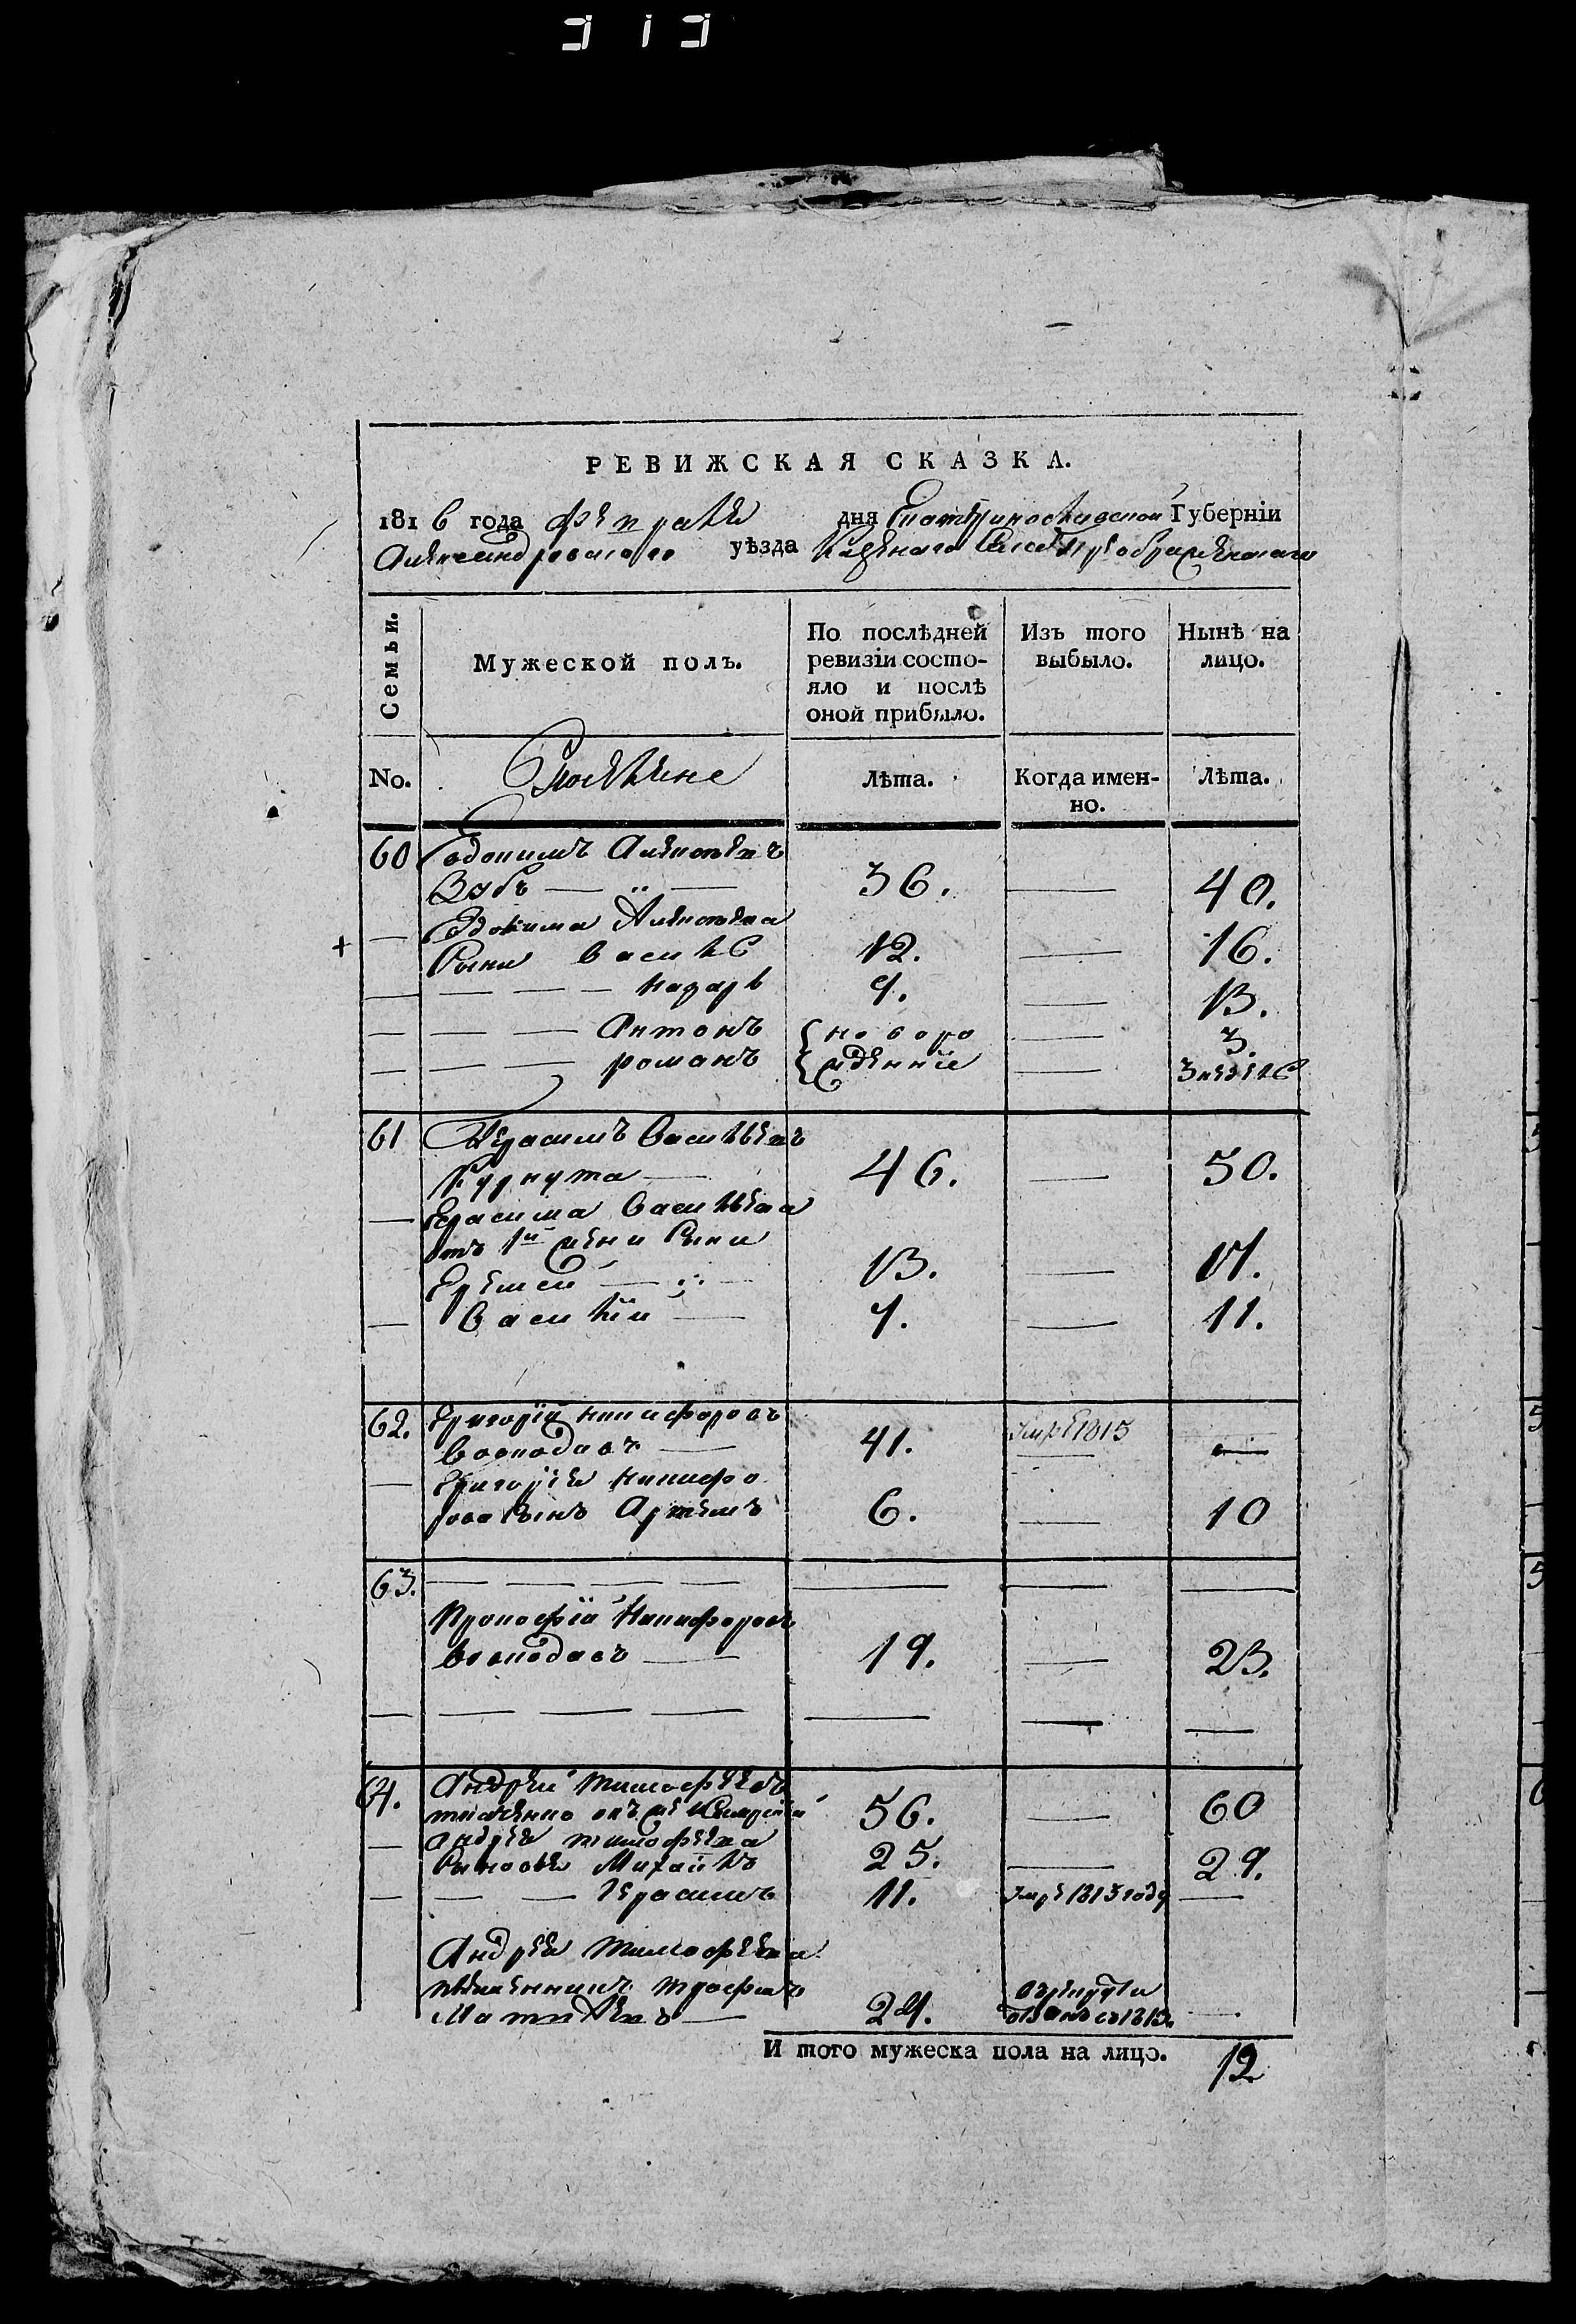 313
РЕВИЖСКАЯ СКАЗКА.
1816 года февраля дня Екатеринославской Губерніи
Александровского уѣзда Казенаго Села Преображенского
Семьи.
Мужеской полъ.
По послѣдней
ревизіи состо-
яло и послѣ
оной прибыло.
Изъ того
выбыло.
Нынѣ на
лицо.
No.
Поселяне
Лѣта.
Когда имен-
но.
Лѣта.
60 Евдокимъ Алексѣевъ
Зубъ 36. 40.
Евдокима Алексѣева
сыни василе 12. 16.
назаръ 9. 13.
Антонъ новоро 3.
романъ жденніе 3 недѣле
61 Герасимъ Васильевъ
46. 50.
Герасима Васильева
отъ 1й жени сыни
Еремей 13. 17.
Василій 7. 11.
62. Григорій никифоровъ
41. умре 1815
Григорія никифо
рова сынъ Артемъ 6. 10
63.
Прокофій Никифоровъ
19. 23.
64. Андрей тимофѣевъ
56. 60
андрея тимофѣева
сыновя Михайло 25. 29.
Герасимъ 11. умре 1813 году
Андрея тимофѣева
племенникъ трофимъ
Матвѣевъ 24. в рекруты
отданъ въ 1813.
И того мужеска пола на лицо. 12